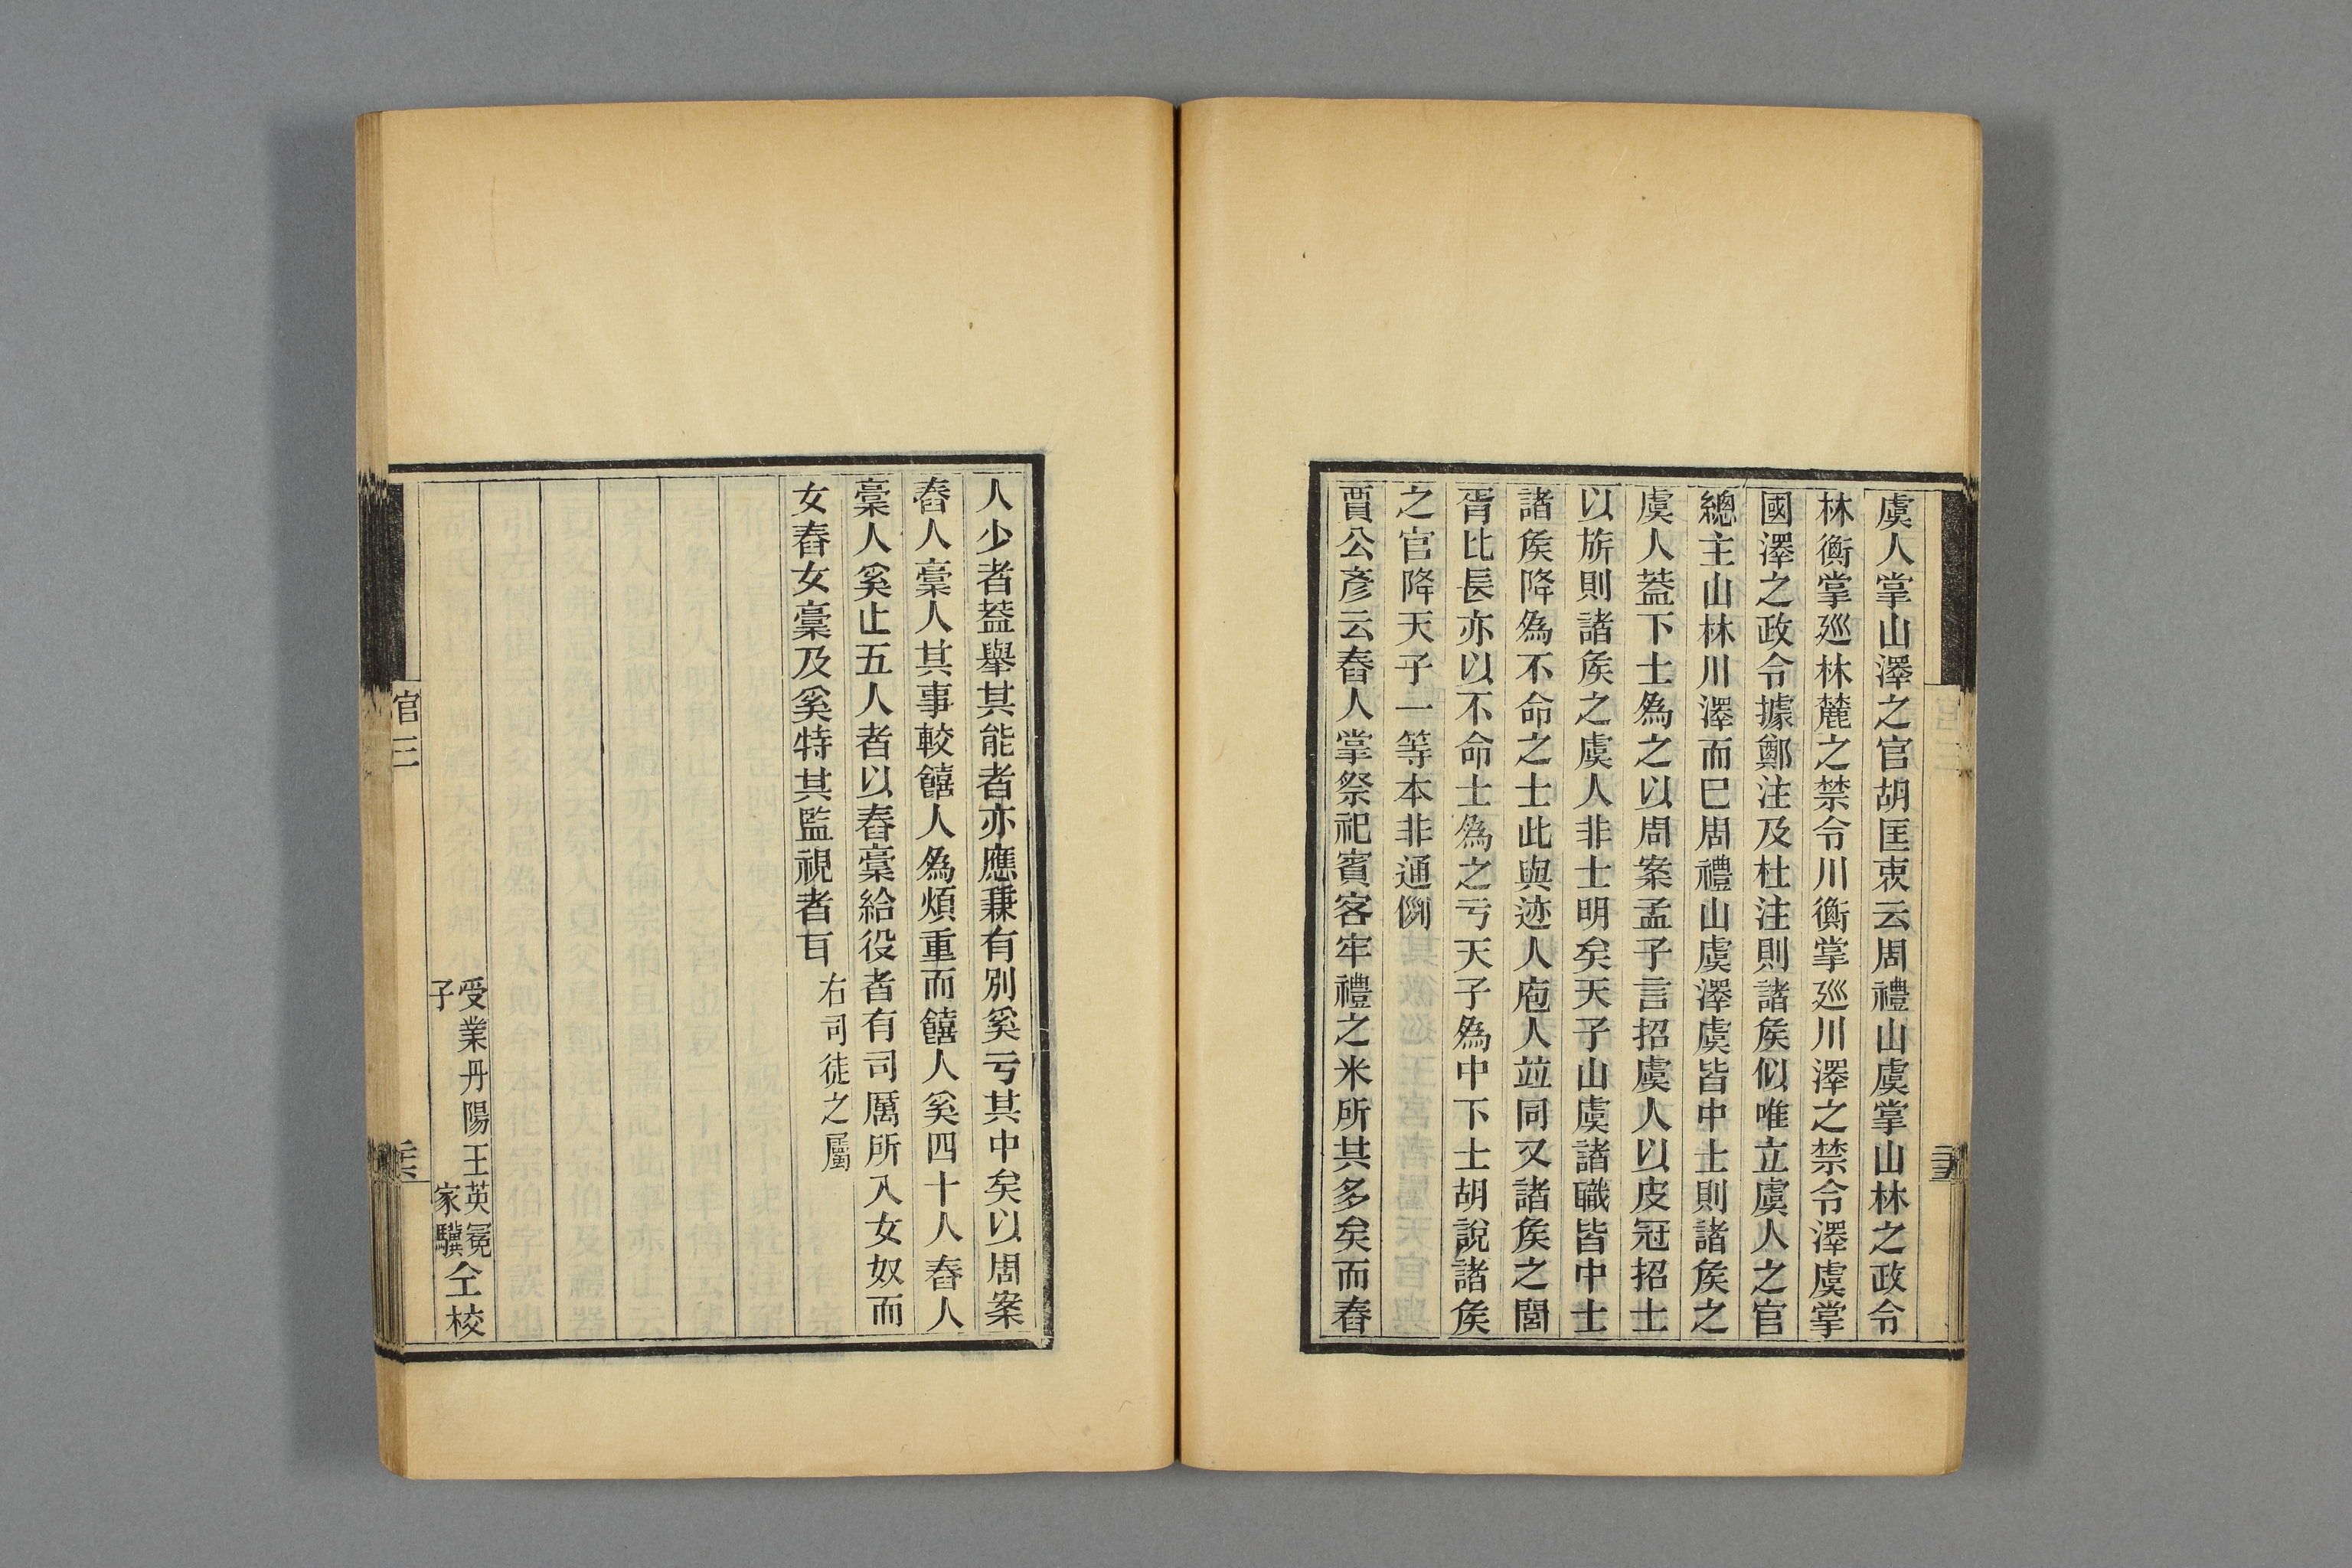 虞人掌山澤之官胡匡衷云周禮山虞掌山林之政令
林衡掌巡林麓之禁令川衡掌巡川澤之禁令澤虞掌
國澤之政令據鄭注及杜注則諸矦似唯立虞人之官
總主山林川澤而巳周禮山虞澤虞皆中士則諸矦之
虞人葢下士爲之以周案孟子言招虞人以皮冠招士
以旂則諸矦之虞人非士明矣天子山虞諸職皆中士
諸矦降爲不命之士此與迹人庖人竝同又諸矦之閽
胥比長亦以不命士爲之亏天子爲中下士胡說諸矦
之官降天子一等本非通例
賈公彥云舂人掌祭祀賓客牢禮之米所其多矣而舂
人少者葢舉其能者亦應兼有別奚亏其中矣以周案
舂人槀人其事較饎人爲煩重而饎人奚四十人舂人
槀人奚止五人者以舂槀給役者有司厲所入女奴而
女舂女槀及奚特其監視者耳 右司徒之屬
受業丹陽王英冕
子 家驥 仝校
官三